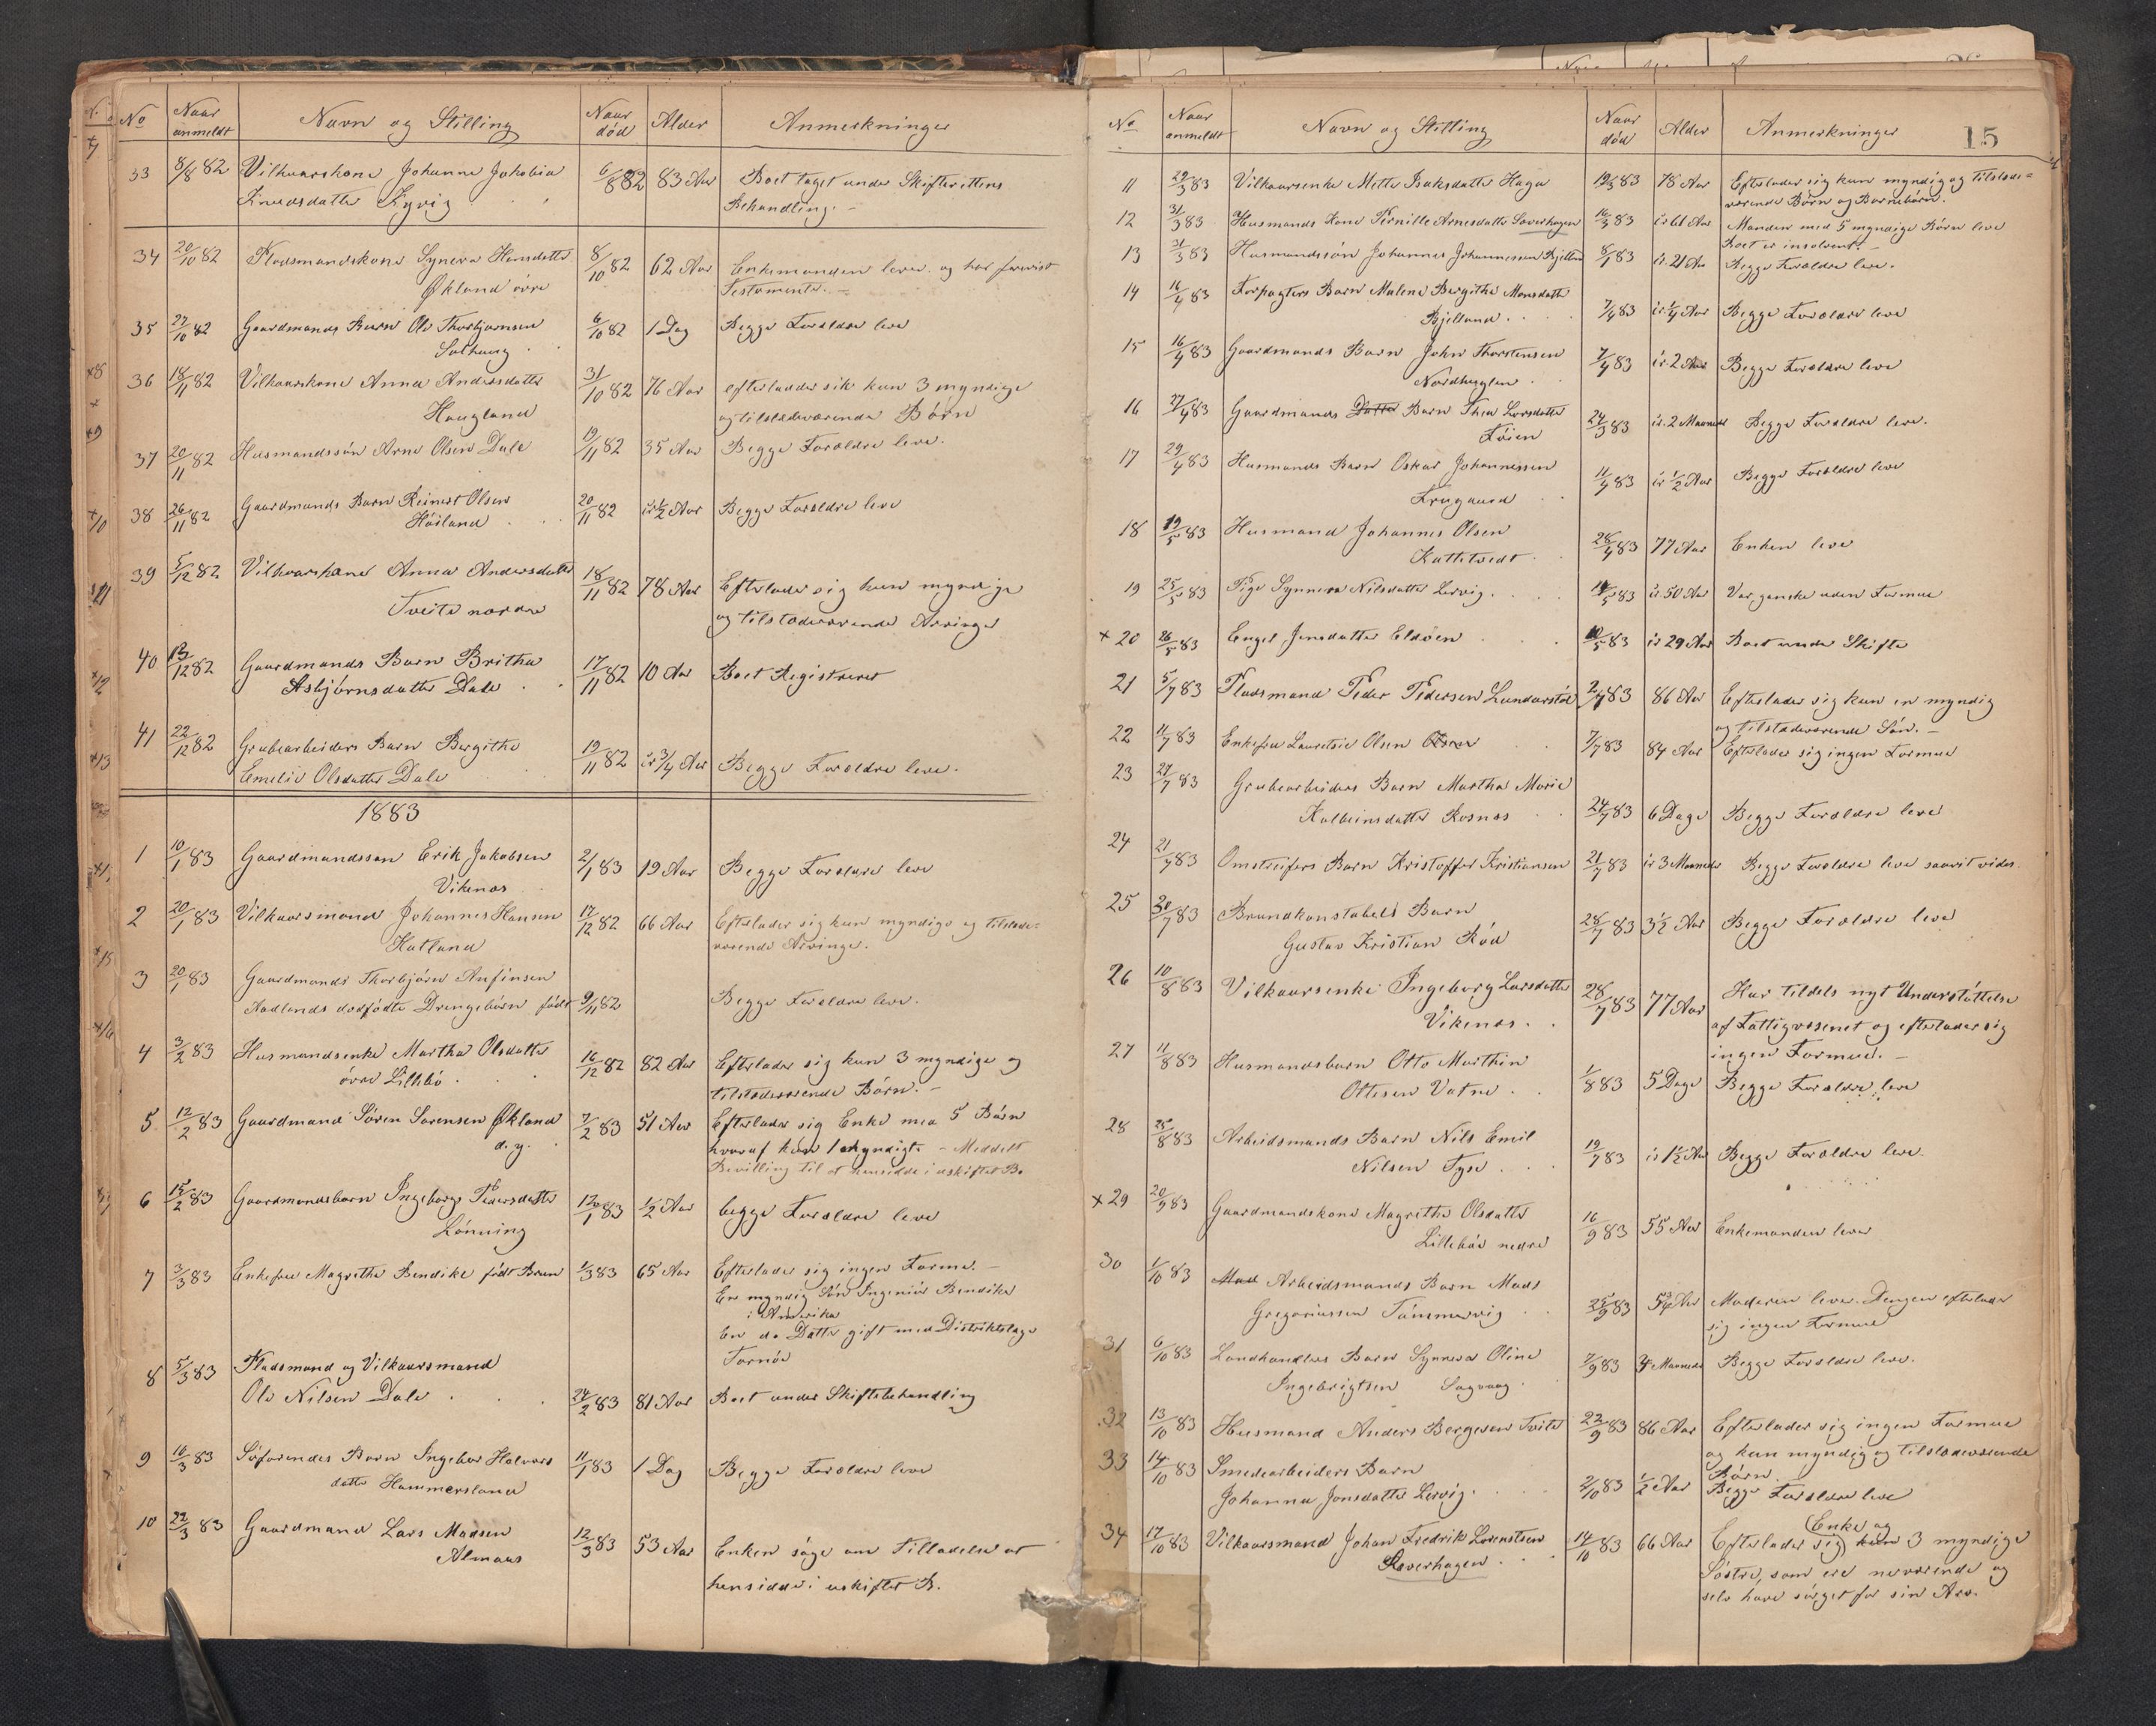 No Naar anmeldt Navn og Stilling Naar död Alder Anmerkninger
33 8/8 82 Vilkaarskone Johanne Jakobia 6/8 82 83 Aar Boet taget under Skifterettens
Knudsdatter Behandling.
34 20/10 82 Pladsmandskone Synneva Hansdatter 8/10 82 62 Aar Enkemanden lever og har forevist
Økland övre Testamente.
35 27/10 82 Gaardmands Barn Ole Thorbjørnsen 6/10 82 1 Dag Begge Forældre leve
36 18/11 82 Vilkaarskone Anna Andersdatter 31/10 82 76 Aar efterlader sik kun 3 myndige
Haugland og tilstedeværende Börn
37 20/11 82 Husmandssön Arne Olsen Dale 19/11 82 35 Aar Begge Forældre leve.
38 26/11 82 Gaardmands Barn Reinert Olsen 20/11 82 ir 1/2 Aar Begge Forældre leve
Höiland
39 5/12 82 Vilkaarskone Anna Andersdatter 18/11 82 78 Aar Efterlader sig kun myndige
Tveite nordre og tilstedeværende Arvinger
40 13/12 82 Gaardmands Barn Britha 17/11 82 10 Aar Boet Registreret
Asbjörnsdatter Dale
41 22/12 82 Grubearbeiders Barn Bergithe 19/11 82 ir 3/4 Aar Begge Forældre leve.
Emelie Olsdatter Dale
1883
1 10/1 83 Gaardmandssøn Erik Jakobsen 2/1 83 19 Aar Begge Forældre leve
Vikenæs
2 20/1 83 Vilkaarsmand Johannes Hansen 17/12 82 66 Aar Efterlader sig kun myndige og tilstede=
Hatland værende Arvinge.
3 20/1 83 Gaardmands Thorbjörn Anfinsen
Aadlands dødfödte Drengebörn födt 9/11 82 Begge Forældre leve.
4 3/2 83 Husmandsenke Martha Olsdatter 16/12 82 82 Aar Efterlader sig kun 3 myndige og
övre Lillebö tilstedeværende Börn.
5 12/2 83 Gaardmand Sören Sørensen Økland 7/2 83 51 Aar Efterlader sig Enke med 5 Börn
d. y. hvoraf kun 1 Meddelt
Bevilling til at hensidde i uskiftet Bo
6 15/2 83 Gaardmandsbarn Ingeborg Pedersdatter 12/1 83 1/2 Aar begge Forældre leve
Lönning
7 3/3 83 Enkefru Magrethe Bendike födt Brun 1/3 83 65 Aar Efterlader sig ingen Formue.
En myndig Sön Ingeniör Bendike
i Amerika
En do Datter gift med Distriktslæge
8 5/3 83 Pladsmand og Vilkaarsmand
Ole Nilsen Dale 24/2 83 81 Aar Boet under Skiftebehandling
9 16/3 83 Söfarendes Barn Ingebor Halvors 11/1 83 1 Dag Begge Forældre leve
datter Hammersland
10 22/3 83 Gaardmand Lars Madsen 12/3 83 53 Aar Enken söge om Tilladelse at
Almaas hensidde i uskiftet B.
15
No Naar anmeldt Navn og Stilling Naar död Alder Anmerkninger
11 29/3 83 Vilkaarsenke Mette Isaksdatter Haga 19/3 83 78 Aar Efterlader sig kun myndig og tilstede=
værende Börn og Barnebörn.
12 31/3 83 Husmands Kone Pernille Arnesdatter Soverhagen 16/3 83 ir 61 Aar Manden med 5 myndige Börn leve
Boet er insolvent.
13 31/3 83 Husmandssön Johannes Johannessen 8/1 83 ir. 21 Aar Begge Forældre leve.
14 16/4 83 Forpagters Barn Malene Bergithe Monsdatter
Bjelland 7/4 83 ir 1/4 Aar Begge Forældre leve
15 16/4 83 Gaardmands Barn John Thorstensen
Nordhuglen 7/4 83 ir 2 Aar Begge Forældre leve
16 27/4 83 Gaardmands Datter Barn Thea Larsdatter
24/3 83 ir. 2 Maaneder Begge Forældre leve.
17 29/4 83 Husmands Barn Oskar Johannessen
11/4 83 ir 1/2 Aar Begge Forældre leve
18 19/5 83 Husmand Johannes Olsen
Kattetvedt 28/4 83 77 Aar Enken lever
19 25/5 83 Pige Synneva Nilsdatter Lervig. 14/5 83 ir. 50 Aar Var ganske uden Formue
x 20 26/5 83 Engel Jensdatter Eldöen 10/5 83 ir 29 Aar Boet under Skifte
21 5/7 83 Pladsmand Peder Pedersen Lundarstöl 2/7 83 86 Aar Efterlader sig kun en myndig
og tilstedeværende Sön.
22 11/7 83 Enkefru Lauretsie Olsen 7/7 83 84 Aar Efterlader sig ingen Formue
23 27/7 83 Grubearbeiders Barn Martha Marie
Kolbeinsdatter Rosnæs 24/7 83 6 Dage Begge Forældre leve
24 21/7 83 Omstreifers Barn Kristoffer Kristiansen 21/7 83 ir 3 Maaneder Begge Forældre leve saavit vides
25 30/7 83 Brandkonstabels Barn
Gustav Kristian Röd 28/7 83 3 1/2 Aar Begge Forældre leve
26 10/8 83 Vilkaarsenke Ingeborg Larsdatter 28/7 83 77 Aar Har tildels nyt Understöttelse
Vikenæs. af Fattigvæsenet og efterlader sig
ingen Formue.
27 11/8 83 Husmandsbarn Otto Marthin
Ottesen Vatne 1/8 83 5 Dage Begge Forældre leve
28 25/8 83 Arbeidsmands Barn Nils Emil
Nilsen Tyse 19/7 83 ir 1 1/2 Aar Begge Forældre leve
x 29 20/9 83 Gaardmandskone Magrethe Olsdatter
Lillebö nedre 16/9 83 55 Aar Enkemanden lever
30 1/10 83 Mad Arbeidsmands Barn Mads
Gregoriussen Tömmervig 25/9 83 Moderen lever. Drengen efterlader
sig ingen Formue
31 6/10 83 Landhandlers Barn Synneva Oline
Ingebrigtsen Sagvaag 7/9 83 Maaneder Begge Forældre leve.
32 13/10 83 Husmand Anders Bergesen Tveite 22/9 83 86 Aar Efterlader sig ingen Formue
og kun myndig og tilstedeværende
Börn.
33 14/10 83 Smedearbeiders Barn
Johanna Jonsdatter Lervig. 2/10 83 1/2 Aar Begge Forældre leve
34 17/10 83 Vilkaarsmand Johan Fredrik Lorentsen 14/10 83 66 Aar Efterlader sig (Enke og) kun 3 myndige
Soverhagen Söstre, som ere nærværende og
selv have sörget for sin Arv.